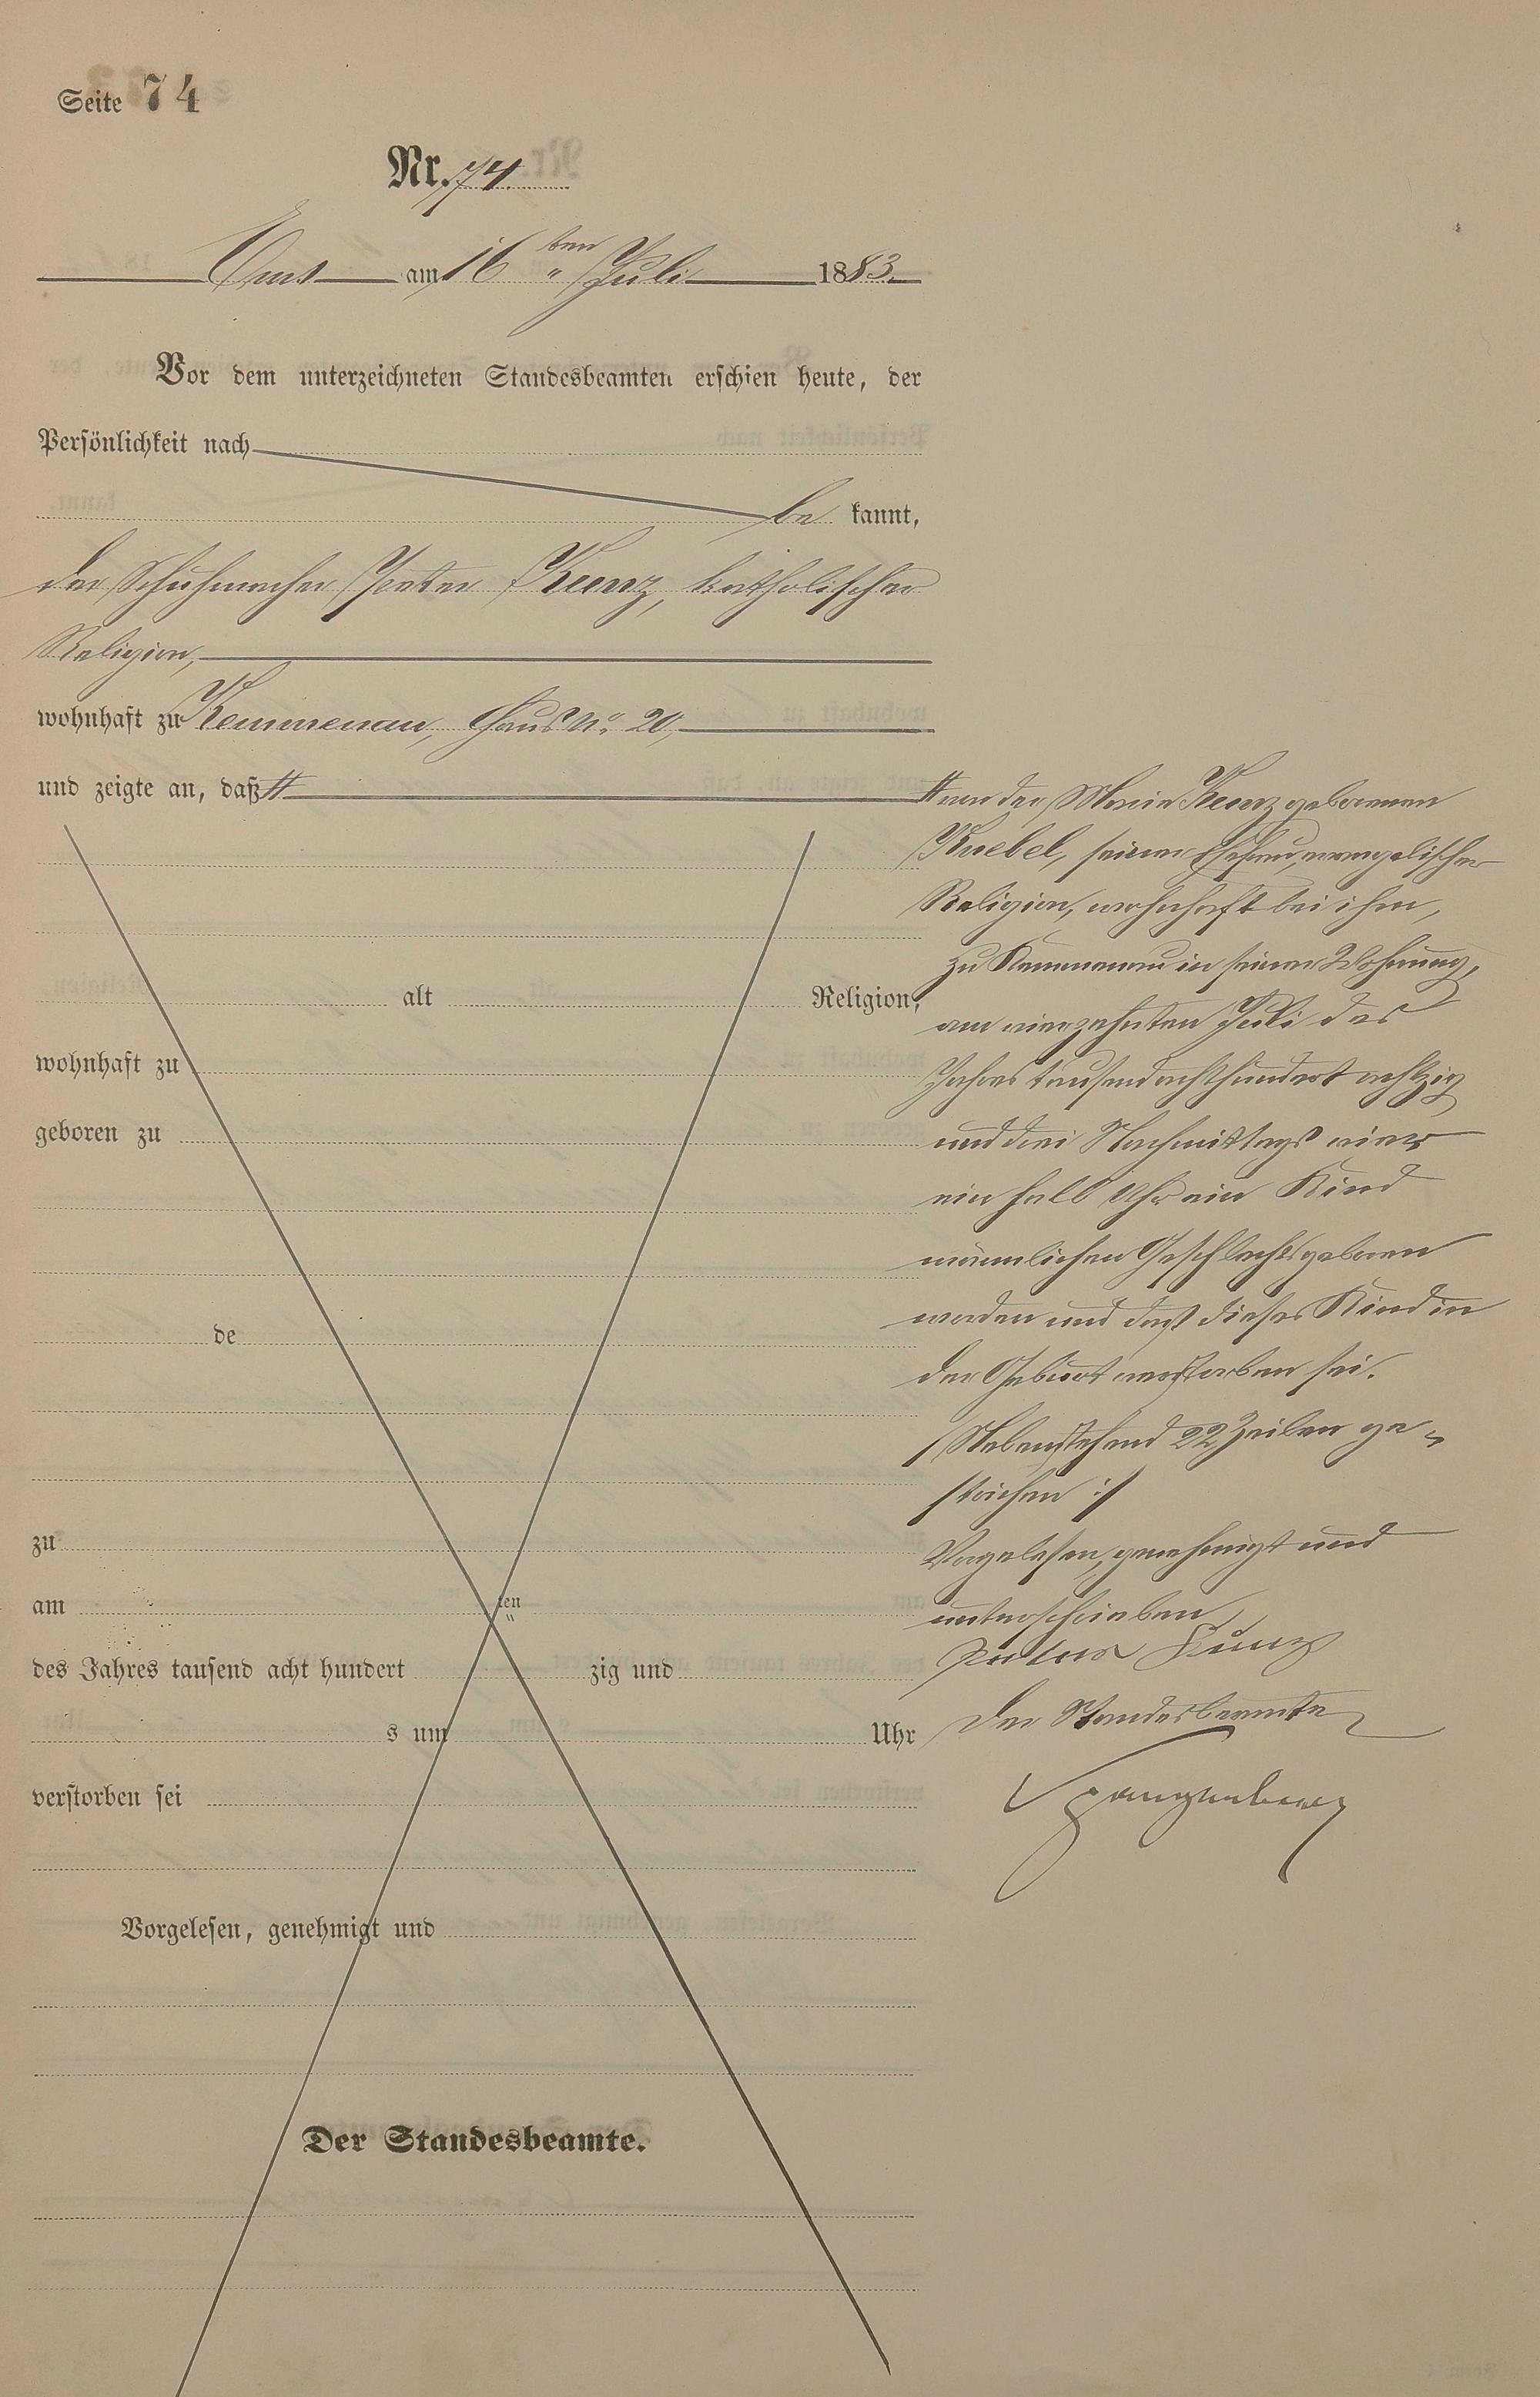 Seite 74
Nr. 74.
Ems am 16 ten " Juli 1883.
Vor dem unterzeichneten Standesbeamten erschien heute, der
Persönlichkeit nach
be kannt,
der Schuhmacher Peter Kunz, katholischer
Religion,
wohnhaft zu Kemmenau, Haus No. 20,
und zeigte an, daß #
alt Religion,
wohnhaft zu
geboren zu
de
zu
am ten "
des Jahres tausend acht hundert zig und
s um Uhr
verstorben sei
Vorgelesen, genehmigt und
Der Standesbeamte.
# von der Maria Kunz geborenen
Knebel, seiner Ehefrau, evangelischer
Religion, wohnhaft bei ihm,
zu Kemmenau in seiner Wohnung,
am vierzehnten Juli des
Jahres tausend achthundert achtzig
und drei Nachmittags
ein halb Uhr ein Kind
männlichen Geschlechts geboren
worden und daß dieses Kind in
der Geburt verstorben sei.
Nebenstehend 22 Zeilen ge-
strichen :/
Vorgelesen, genehmigt und
unterschrieben
Peter Kunz
Der Standesbeamte
Spangenberg